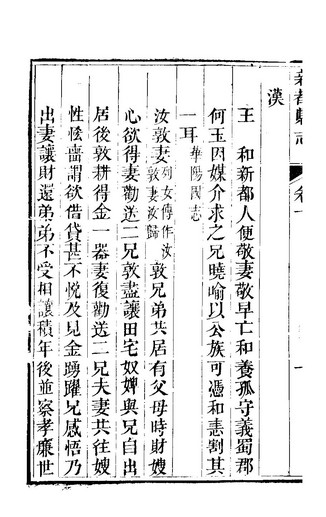 新都縣志 卷十
漢
王 和新都人便敬妻敬早亡和養孤守義蜀郡
何玉因媒介求之兄曉喻以公族可憑和恚割其
一耳華陽國志
汝敦妻列女傳作汝敦妻汝歸敦兄弟共居有父母時財嫂
心欲得妻勸送二兄敦盡讓田宅奴婢與兄自出
居後敦耕得金一器妻復勸送二兄夫妻共往嫂
性悋嗇謂欲借貸甚不悅及見金踴躍兄感悟乃
出妻讓財還弟弟不受相讓積年後並察孝廉世